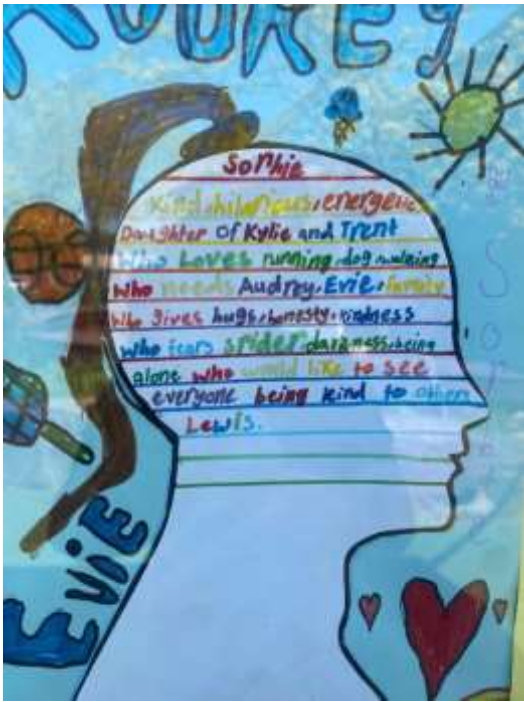 AUDREY
Sophie
Kind, hilarious, energetic
Daughter Of Kylie and Trent
Who Loves running, dog walking
Who needs Audrey, Evie, family
Who gives hugs, honesty, kindness
Who fears spider darkness, being
alone who would like to see
everyone being kind to others
Lewis.
Evie